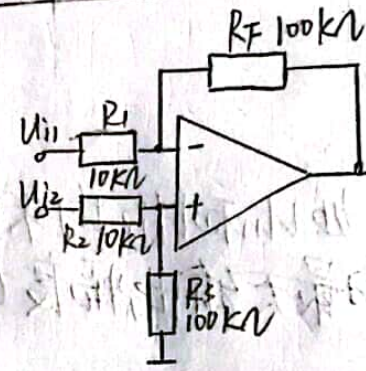 RF 100kΩ
R1
Ui1
10kΩ
-
Ui2
+
R2 10kΩ
R3
100kΩ